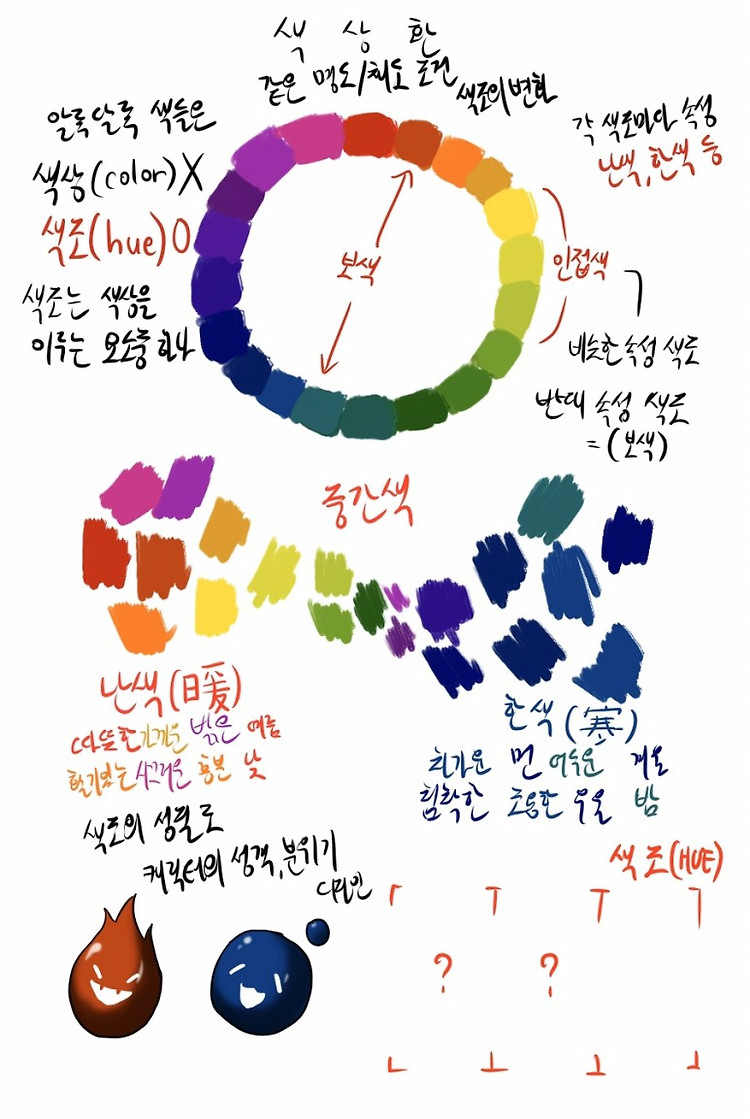 색 상 환
같은 명도/채도 조건
색조의 변화
알록달록 색들은
색상(color)X
색조(hue)O
색조는 색상을
이루는 요소중 하나
각 색조마다 속성
난색, 한색 등
보색
인접색
비슷한 속성 색조
반대 속성 색조
=(보색)
중간색
난색(暖)
따뜻한 가까운 밝은 여름
활기있는 싱그러운 흥분 낮
한색(寒)
차가운 먼 어두운 겨울
침착한 조용한 우울 밤
색조의 성질로
캐릭터의 성격, 분위기
디자인
색조(HUE)
? ?